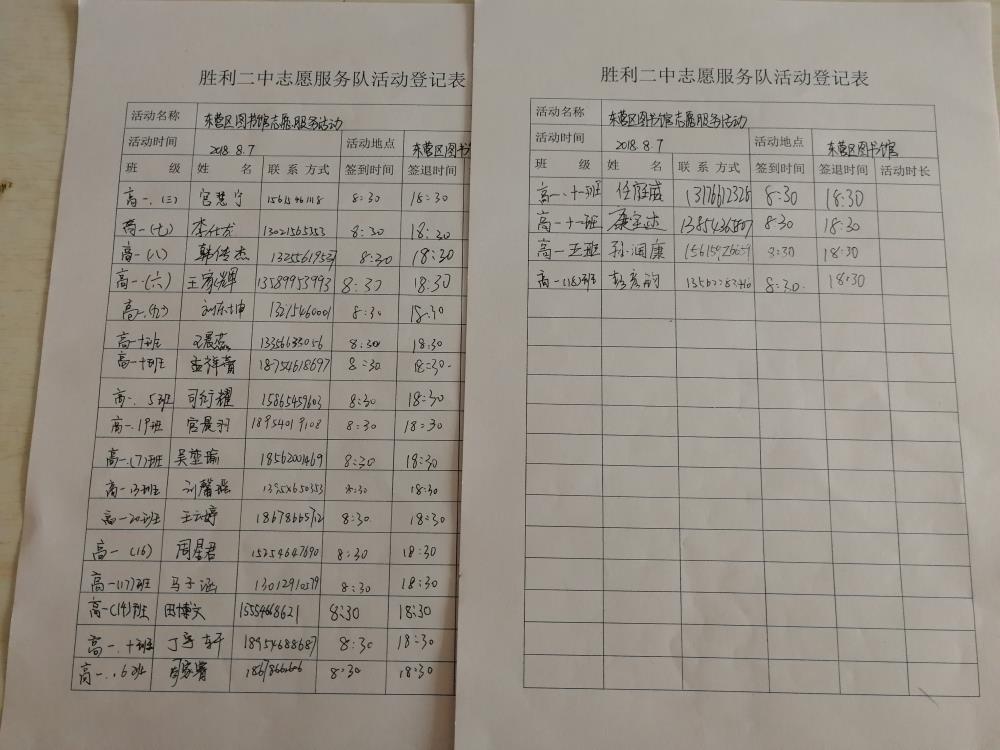 胜利二中志愿服务队活动登记表
活动名称 东营区图书馆志愿服务活动
活动时间 2018.8.7 活动地点 东营区图书
班 级 姓 名 联系方式 签到时间 签退时间
高一.(三) 宫慧宁 8:30 18:30
高一(七) 李仕龙 13021565353 8:30 18:30
高一(八) 韩传杰 8:30 18:30
高一(六) 王家辉 13589953993 8:30 18:30
高一.(九) 刘东坤 13215460001 8:30 18:30
高一十班 王晨蕊 13356633056 8:30 18:30
高一十班 孟祥菁 18754618697 8:30 18:30
高一.5班 司衍耀 15865459603 8:30 18:30
高一.19班 宫晨羽 18954019108 8:30 18:30
高一.(7)班 吴堃瑜 18562001469 8:30 18:30
高一13班 刘馨 8:30 18:30
高一20班 王云婷 18678665712 8:30 18:30
高一(16) 周星君 15254647690 8:30 18:30
高一(17)班 马子涵 13012910579 8:30 18:30
高一(14)班 田博文 15554668621 8:30 18:30
高一.十班 丁宇轩 18954688687 8:30 18:30
高一..6班 8:30 18:30
胜利二中志愿服务队活动登记表
活动名称 东营区图书馆志愿服务活动
活动时间 2018.8.7 活动地点 东营区图书馆
班 级 姓 名 联系方式 签到时间 签退时间 活动时长
高一.十一班 13176612326 8:30 18:30
高一十一班 康宝达 13854365807 8:30 18:30
高一五班 孙润康 15615926659 8:30 18:30
高一(18)班 8:30 18:30